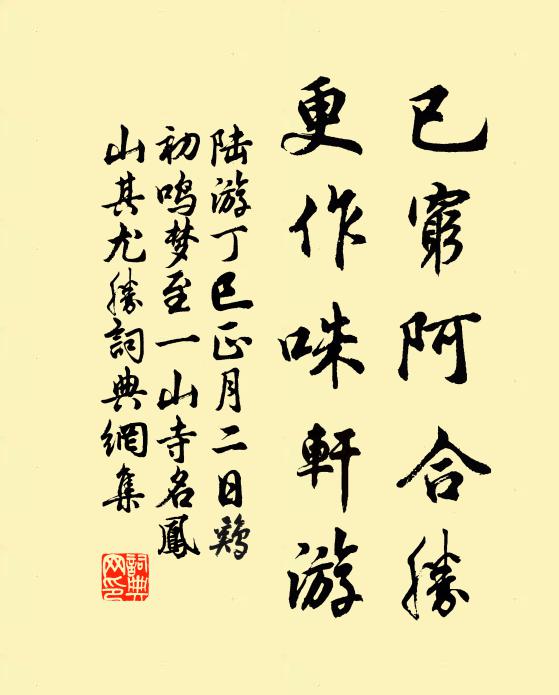 已窮阿合勝
更作咮軒游
陆游丁巳正月二日鷄
初鸣梦至一山寺名鳳
山其尤勝詞典網集
詞典
网印